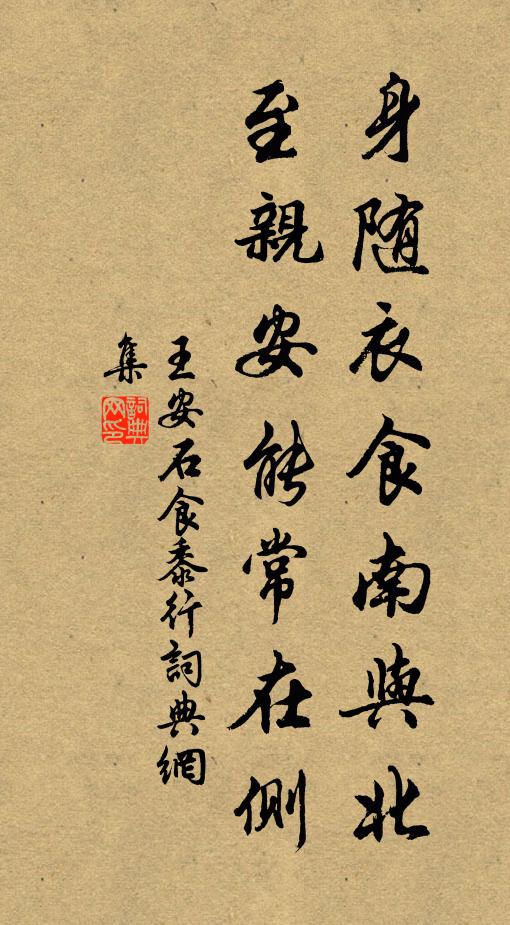 身随衣食南與北
至親安能常在側
王安石食黍行詞典網
集
詞典
网印